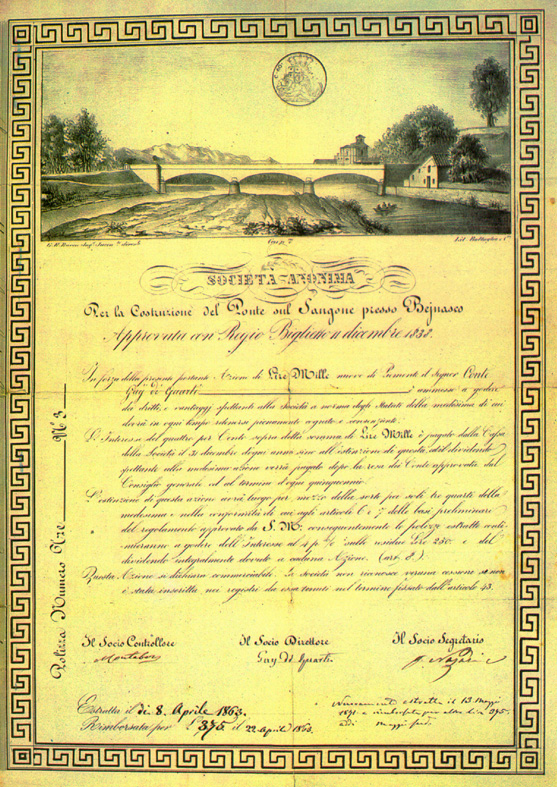 Gius.e
Lit.
SOCIETÀ ANONIMA
Per la Costruzione del Ponte sul Sangone presso Bejnasco
Approvata con Regio Biglietto 11 dicembre 1838.
In forza della presente portante Azione di Lire Mille nuove di Piemonte il Signor Conte
Gay di Quarti è ammesso a godere
dei dritti, e vantaggi spettanti alla Società a norma degli Statuti della medesima di cui
dovrà in ogni tempo ritenersi pienamente
L'Interesse del quattro per Cento sopra detta somma di Lire Mille è pagato dalla Cassa
della Società il 31 dicembre d'ogni anno sino all'estinzione di questa, ed il dividendo
spettante alla medesima azione verrà pagato dopo la resa dei Conti approvata dal
Consiglio generale ed al termine d'ogni quinquennio.
L'estinzione di questa azione avrà luogo per mezzo della sorte per soli tre quarti della
medesima e nella conformità di cui agli articoli 6 e 7 delle basi preliminari
del regolamento approvate da S. M. conseguentemente le polizze estratte conti-
nueranno a godere dell'Interesse al 4 p. % sulle residue Lire 250. e del
dividendo integralmente dovuto a caduna Azione. (art. 8.)
Questa Azione si dichiara commerciabile. La Società non riconosce veruna cessione se non
è stata inscritta nei registri da essa tenuti nel termine fissato dall'articolo 43.
Polizza Numero Tre N.° 3
Il Socio Controllore
Il Socio Direttore
Gay di Quarti
Il Socio Segretario
Estratta il dì 8. Aprile 1863.
Rimborsata per L. 375 il 22 Aprile 1863.
Nuovamente estratta il 13 Maggio
1871 e rimborsata per altre lire 375.